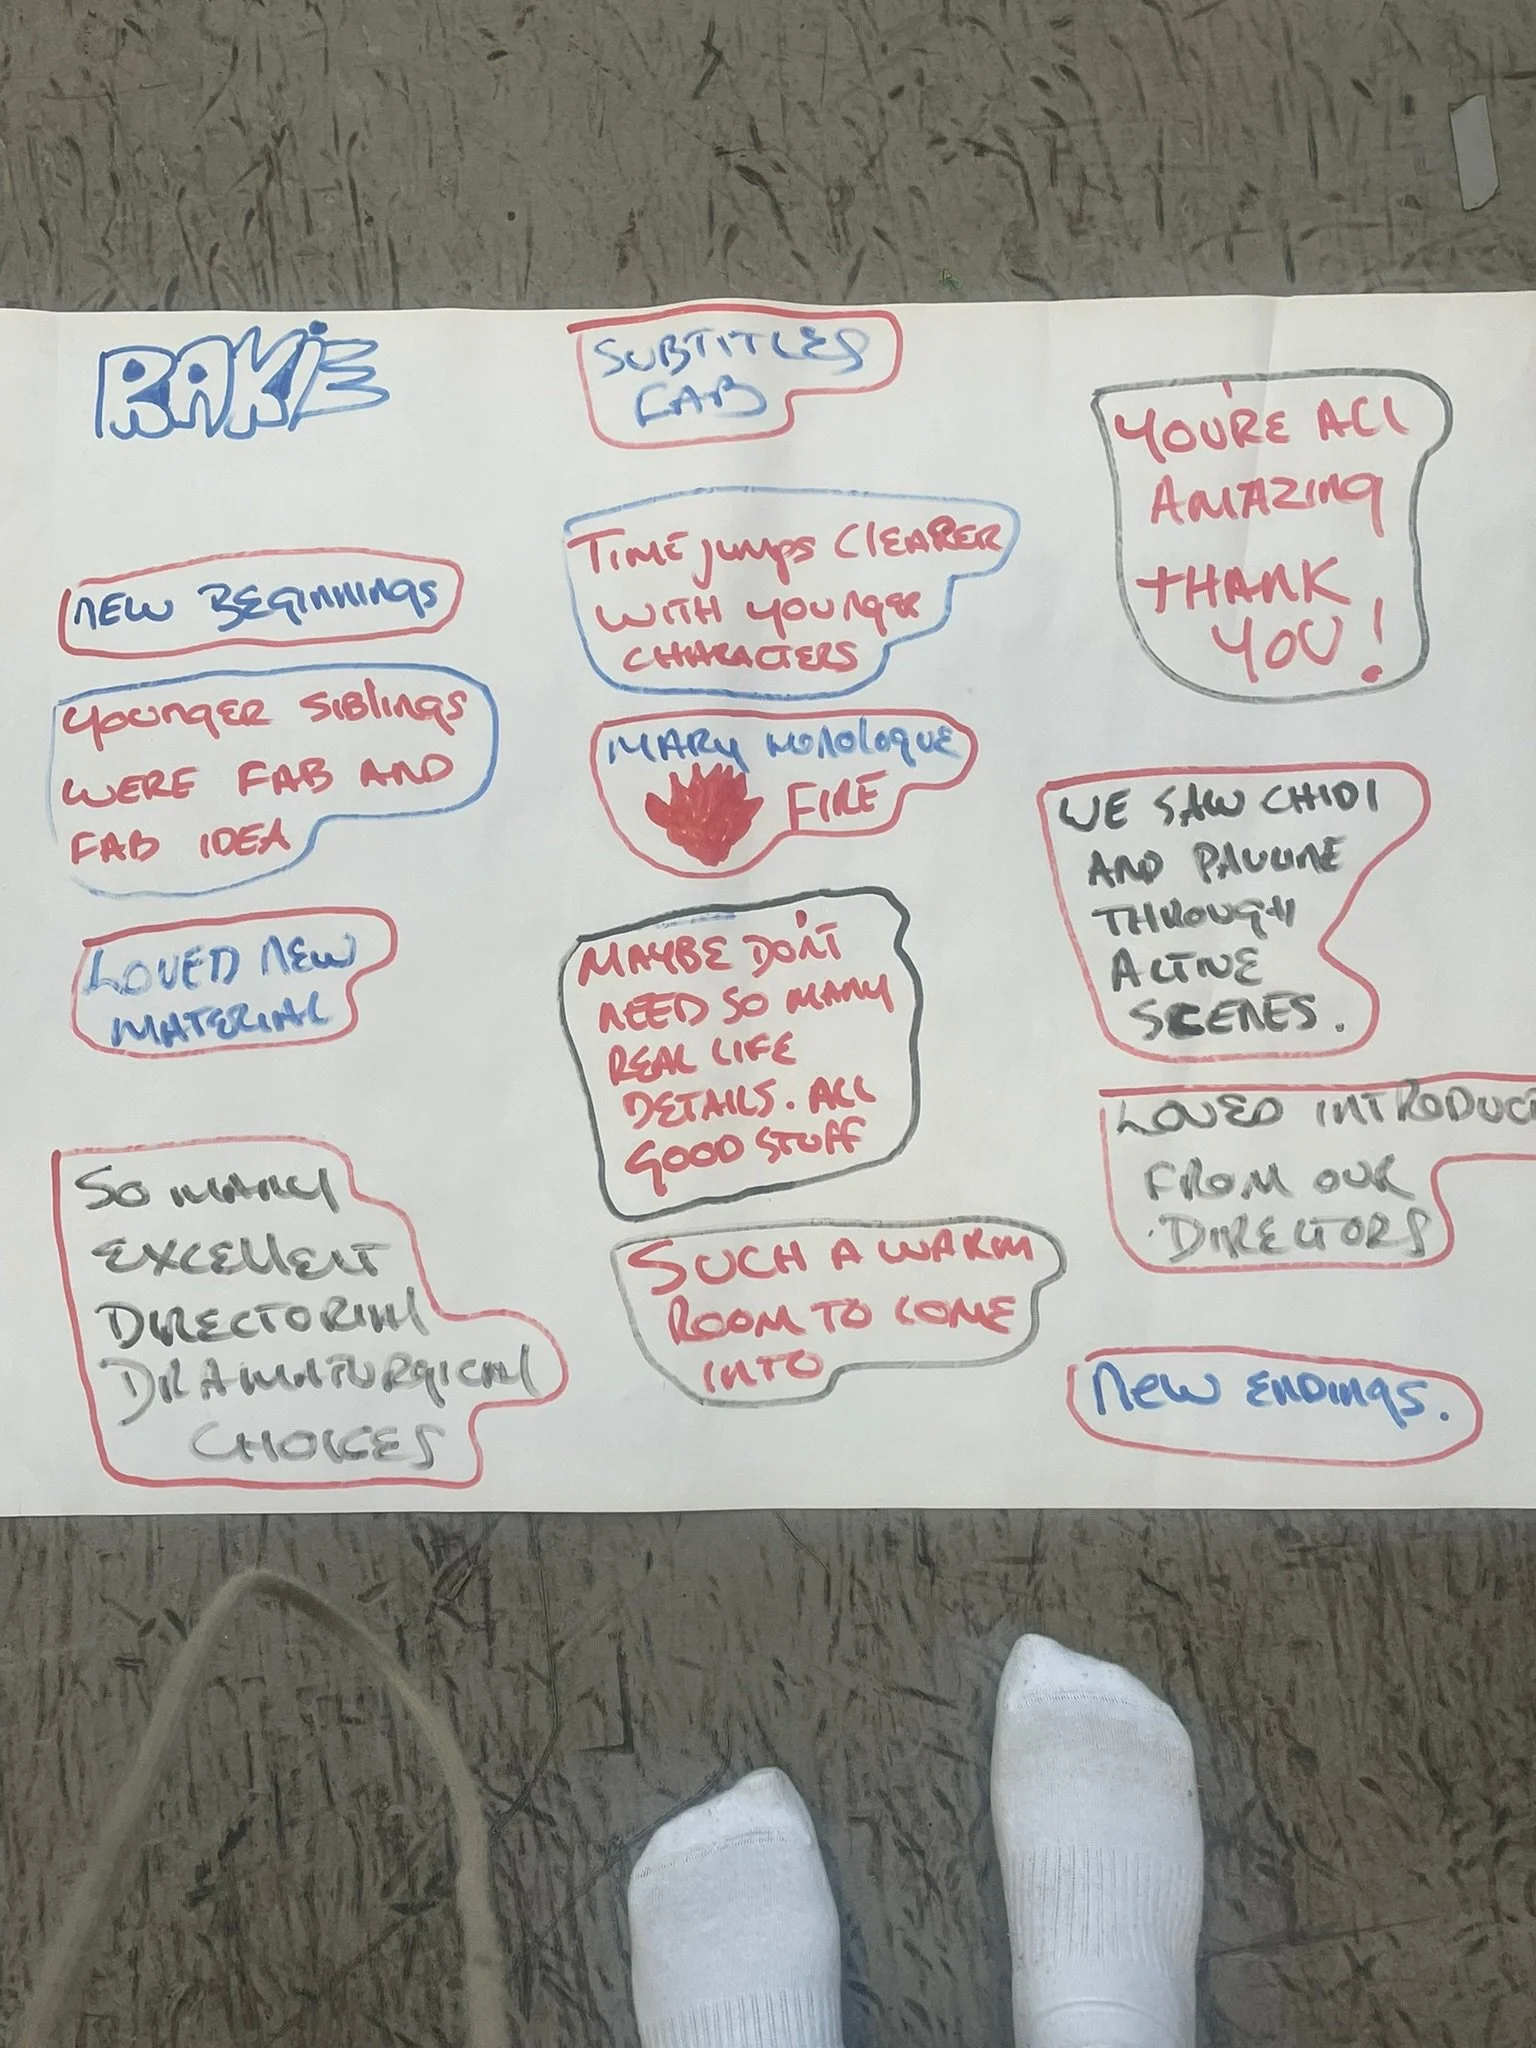 RAKIE
NEW BEGINNINGS
YOUNGER SIBLINGS
WERE FAB AND
FAB IDEA
LOVED NEW
MATERIAL
SO MANY
EXCELLENT
DIRECTORIAL
DRAMATURGICAL
CHOICES
SUBTITLES
FAB
TIME JUMPS CLEARER
WITH YOUNGER
CHARACTERS
MARY MONOLOGUE
FIRE
MAYBE DON'T
NEED SO MANY
REAL LIFE
DETAILS. ALL
GOOD STUFF
SUCH A WARM
ROOM TO COME
INTO
YOU'RE ALL
AMAZING
THANK
YOU!
WE SAW CHIDI
AND PAULINE
THROUGH
ACTIVE
SCENES.
LOVED INTRODUC
FROM OUR
DIRECTORS
NEW ENDINGS.